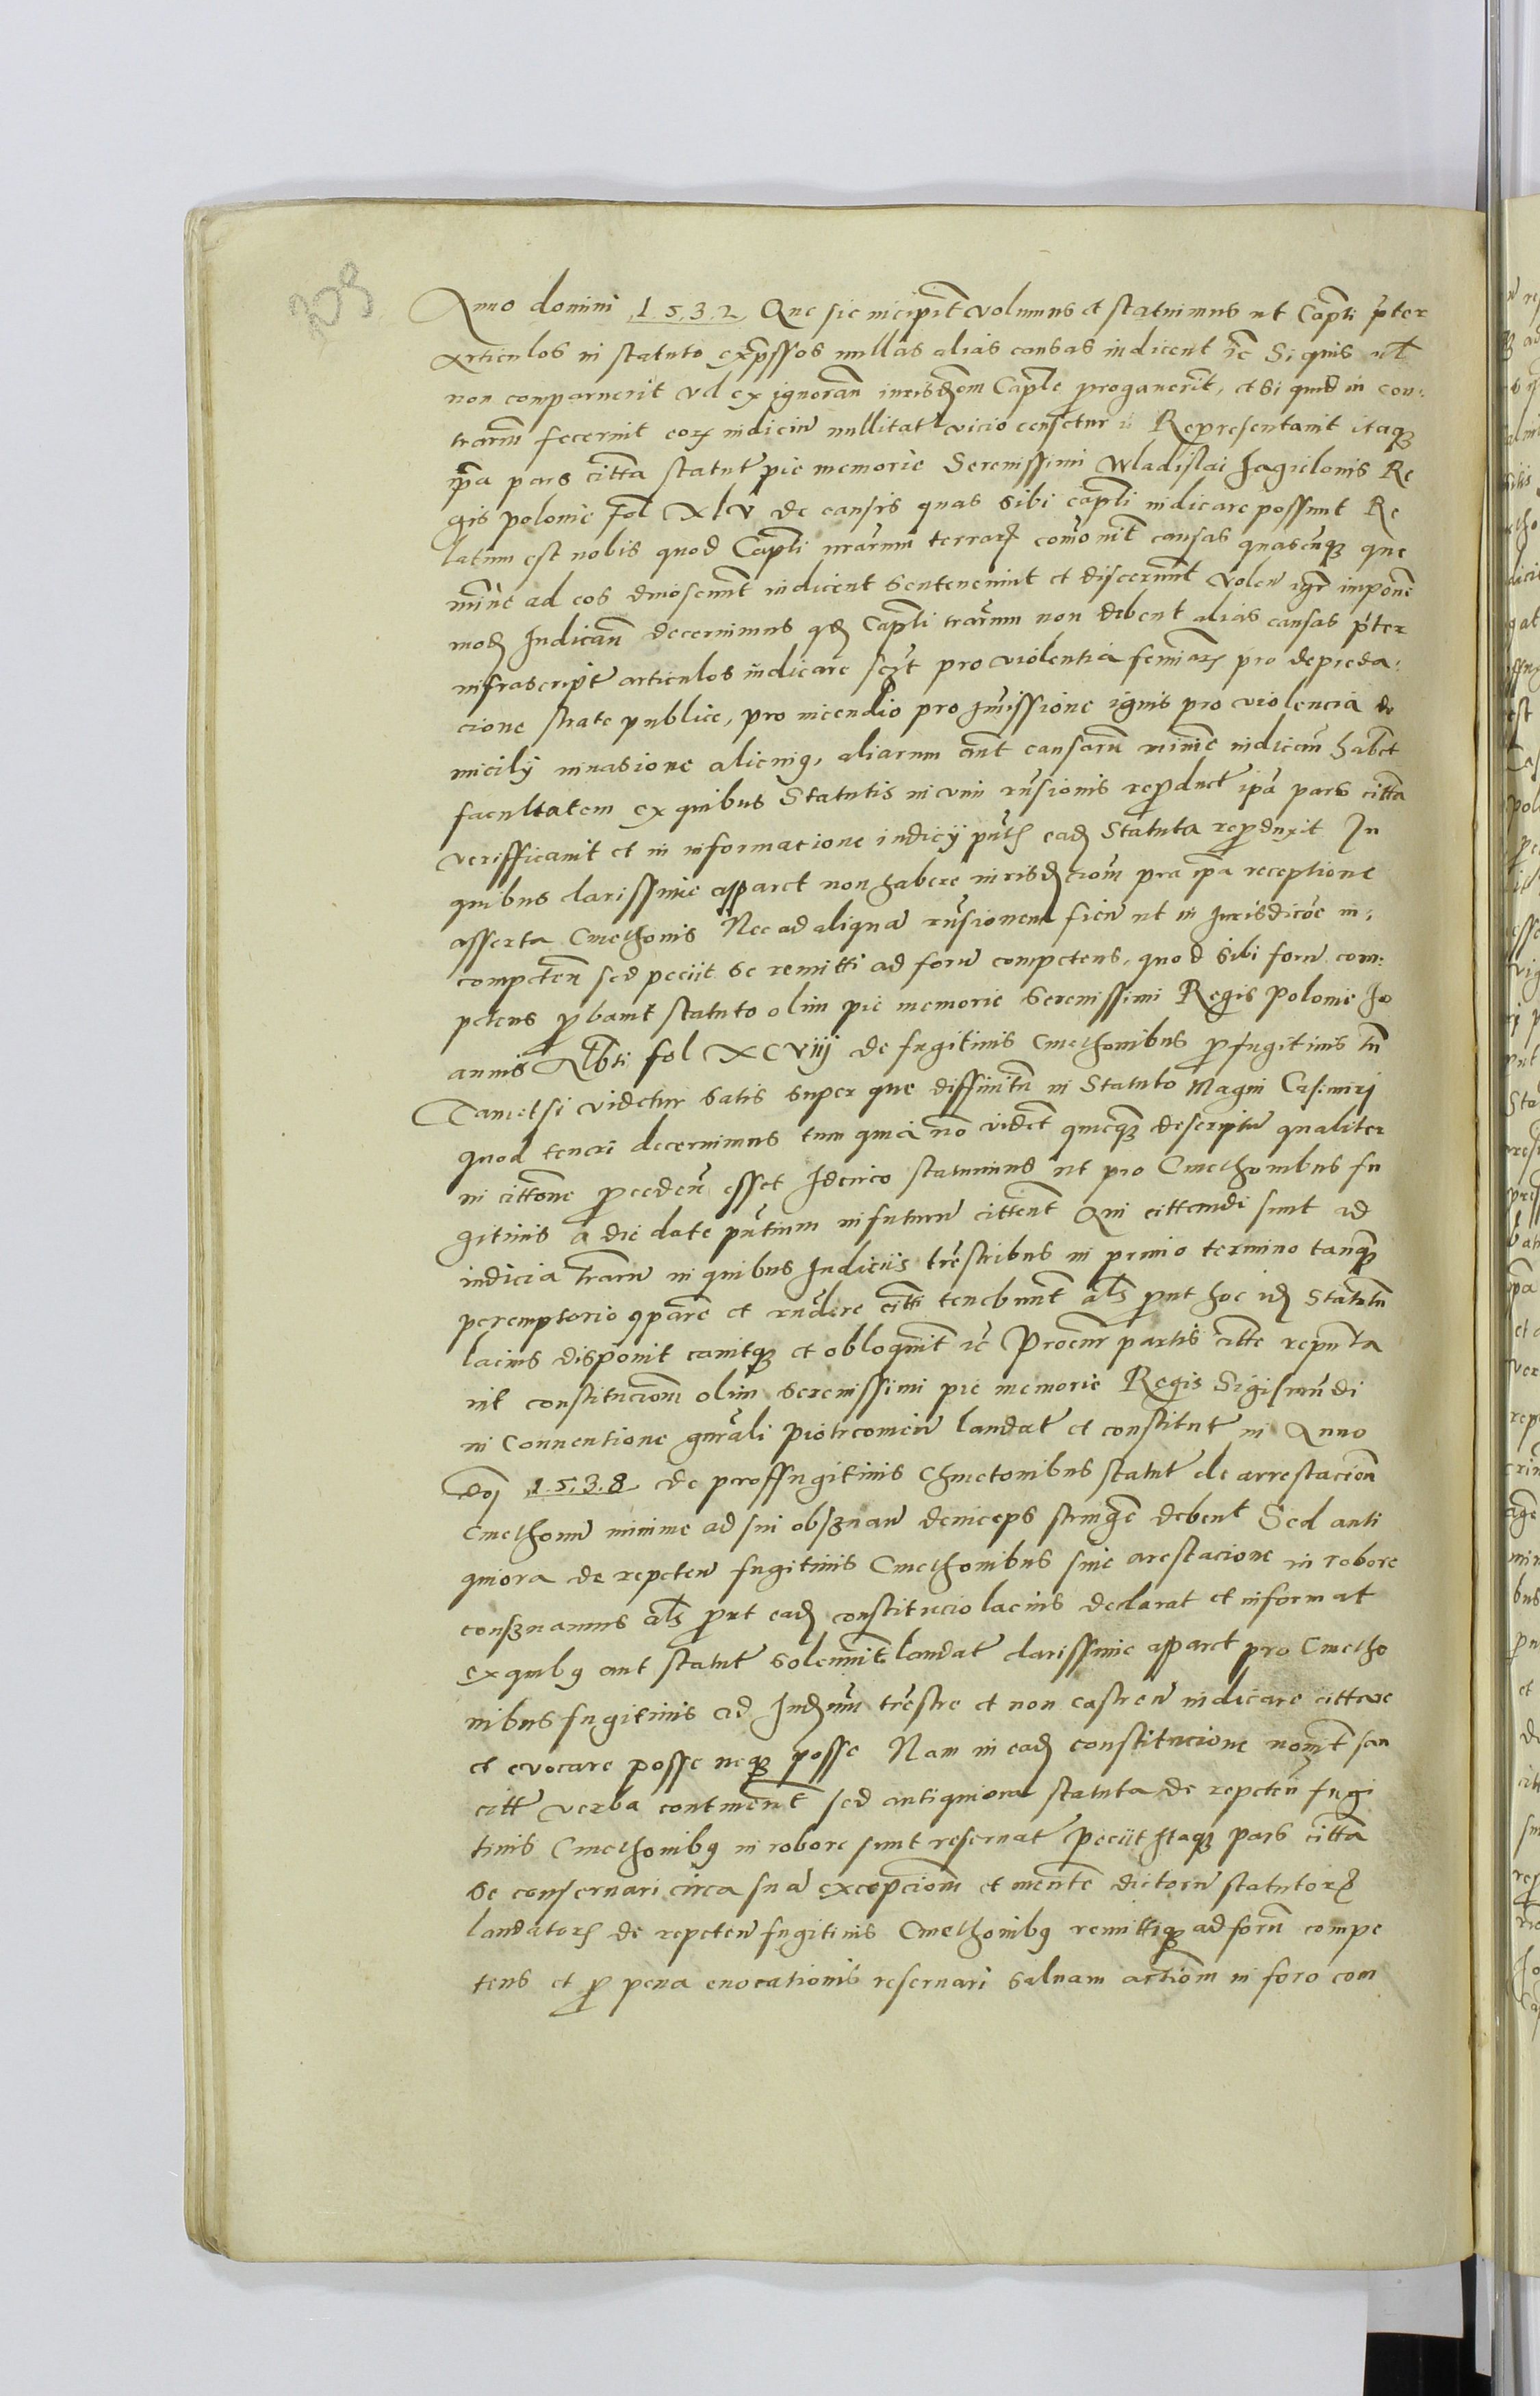 308
Anno domini 1.5.3.2 Que sic incipit volumus et statuimus ut Capti p̃ter
Articulos in statuto exp̃ssos nullas alias causas iudicent ic̃ Si quis ul̃t
non comparuerit vel ex ignorañ iurisd̃em Capt̃e progauerit, et si quid in con:
trariũ fecerint eorꝫ iudiciũ nullitat̃ vicio censetur ic̃ Representauit itaqꝫ
ip̃a pars citt̃a statut̃ pie memorie Serenissimi Wladislai Jagielonis Re
gis polonie fol̃ xlv de causis quas sibi capt̃i iudicare possunt Re
latum est nobis quod Capt̃i nr̃arum terrarꝫ com̃onit̃ causas quascũqꝫ que
min̂e ad eos dinoscunt̃ iudicent sentenciint et discernunt̃ Volen̄ igr̃ imponẽ
modꝫ Judicañ decernimus qdꝫ Capt̃i tr̃arum non debent alias causas p̃ter
infrascript̃ articulos iudicare scꝫt pro violentia feminarꝫ pro depreda:
cione strate publice, pro incendio pro ĩmissione ignis pro violencia do
micilij inuasione alicuiꝰ, aliarum aut̃ causarũ minimẽ iudicañ habet
facultatem ex quibus Statutis in vim r̃nsionis reproduct̃ ip̃a pars citt̃a
verifficauit et in informatione iudicij pñtꝭ eadꝫ Statuta reproduxit In
quibus clarissime apparet non habere iurisdꝫcionẽ pra ip̃a receptione
asserta Cmethonis Nec ad aliquã r̃nsionem fieñ ut in Jurisdic̃oe in:
compteñ sed peciit se remitti ad forũ competens, quod sibi forũ com:
petens ꝓbauit statuto olim pie memorie Serenissimi Regis Polonie Jo
annis Alb̃ti fol xcviij de fugitiuis Cmethonibus ꝓfugitiuis tñ
Tametsi videtur satis super que diffinitũ in Statuto Magni Casimirj
quod teneri decernimus tum quia nõ videt̃ quicqꝫ descriptũ qualiter
in citt̃one ꝓcedeñ esset Idcirco statuimus ut pro Cmethonibus fu
gitiuis a die date pñtium in futurũ cittent̃ Qui cittandi sunt ad
iudicia tr̃arũ in quibus Judicijs tr̃estribus in primo termino tanqꝫ
peremptorio ꝯparẽ et r̃ndere citt̃i tenebunt̃ al̃s ꝓut hoc idꝫ Statutũ
lacius disponit canitqꝫ et obloquit̃ ic̃ Procur̃ partis citt̃e reputa
uit constitucionẽ olim serenissimi pie memorie Regis Sigismũdi
in Conuentione gñrali Piotrcouieñ laudat̃ et constitut̃ in Anno
dñj 1.5.3.8 de proffugitiuis Chmetonibus statut̃ de arrestacioñ
Cmethonũ minime ad sui obsꝫuañ deinceps stringẽ debent Sed anti
quiora de repeteñ fugitiuis Cmethonibus sine arestacione in robore
consꝫuamus al̃s ꝓut eadꝫ constitucio lacius declarat et informat
ex quibꝰ aut statut̃ solenniter̃ laudat̃ clarissime apparet pro Cmetho
nibus fugitiuis ad Judꝫium tr̃estre et non castreñ iudicare cittare
et euocare posse neqꝫ posse Nam in eadꝫ constitucione nomit̃ san
citt̃ verba continent̃ sed antiquiora statuta de repeteñ fugi
tiuis Cmethonibꝰ in robore sunt reseruat̃ Peciit Itaqꝫ pars citt̃a
se conseruari circa suã excepcionẽ et mentẽ dictorũ statutorꝫ
laudatorꝫ de repeteñ fugitiuis Cmethonibꝰ remittiqꝫ ad forũ compe
tens et ꝓ pena euocationis reseruari saluam actionẽ in foro com